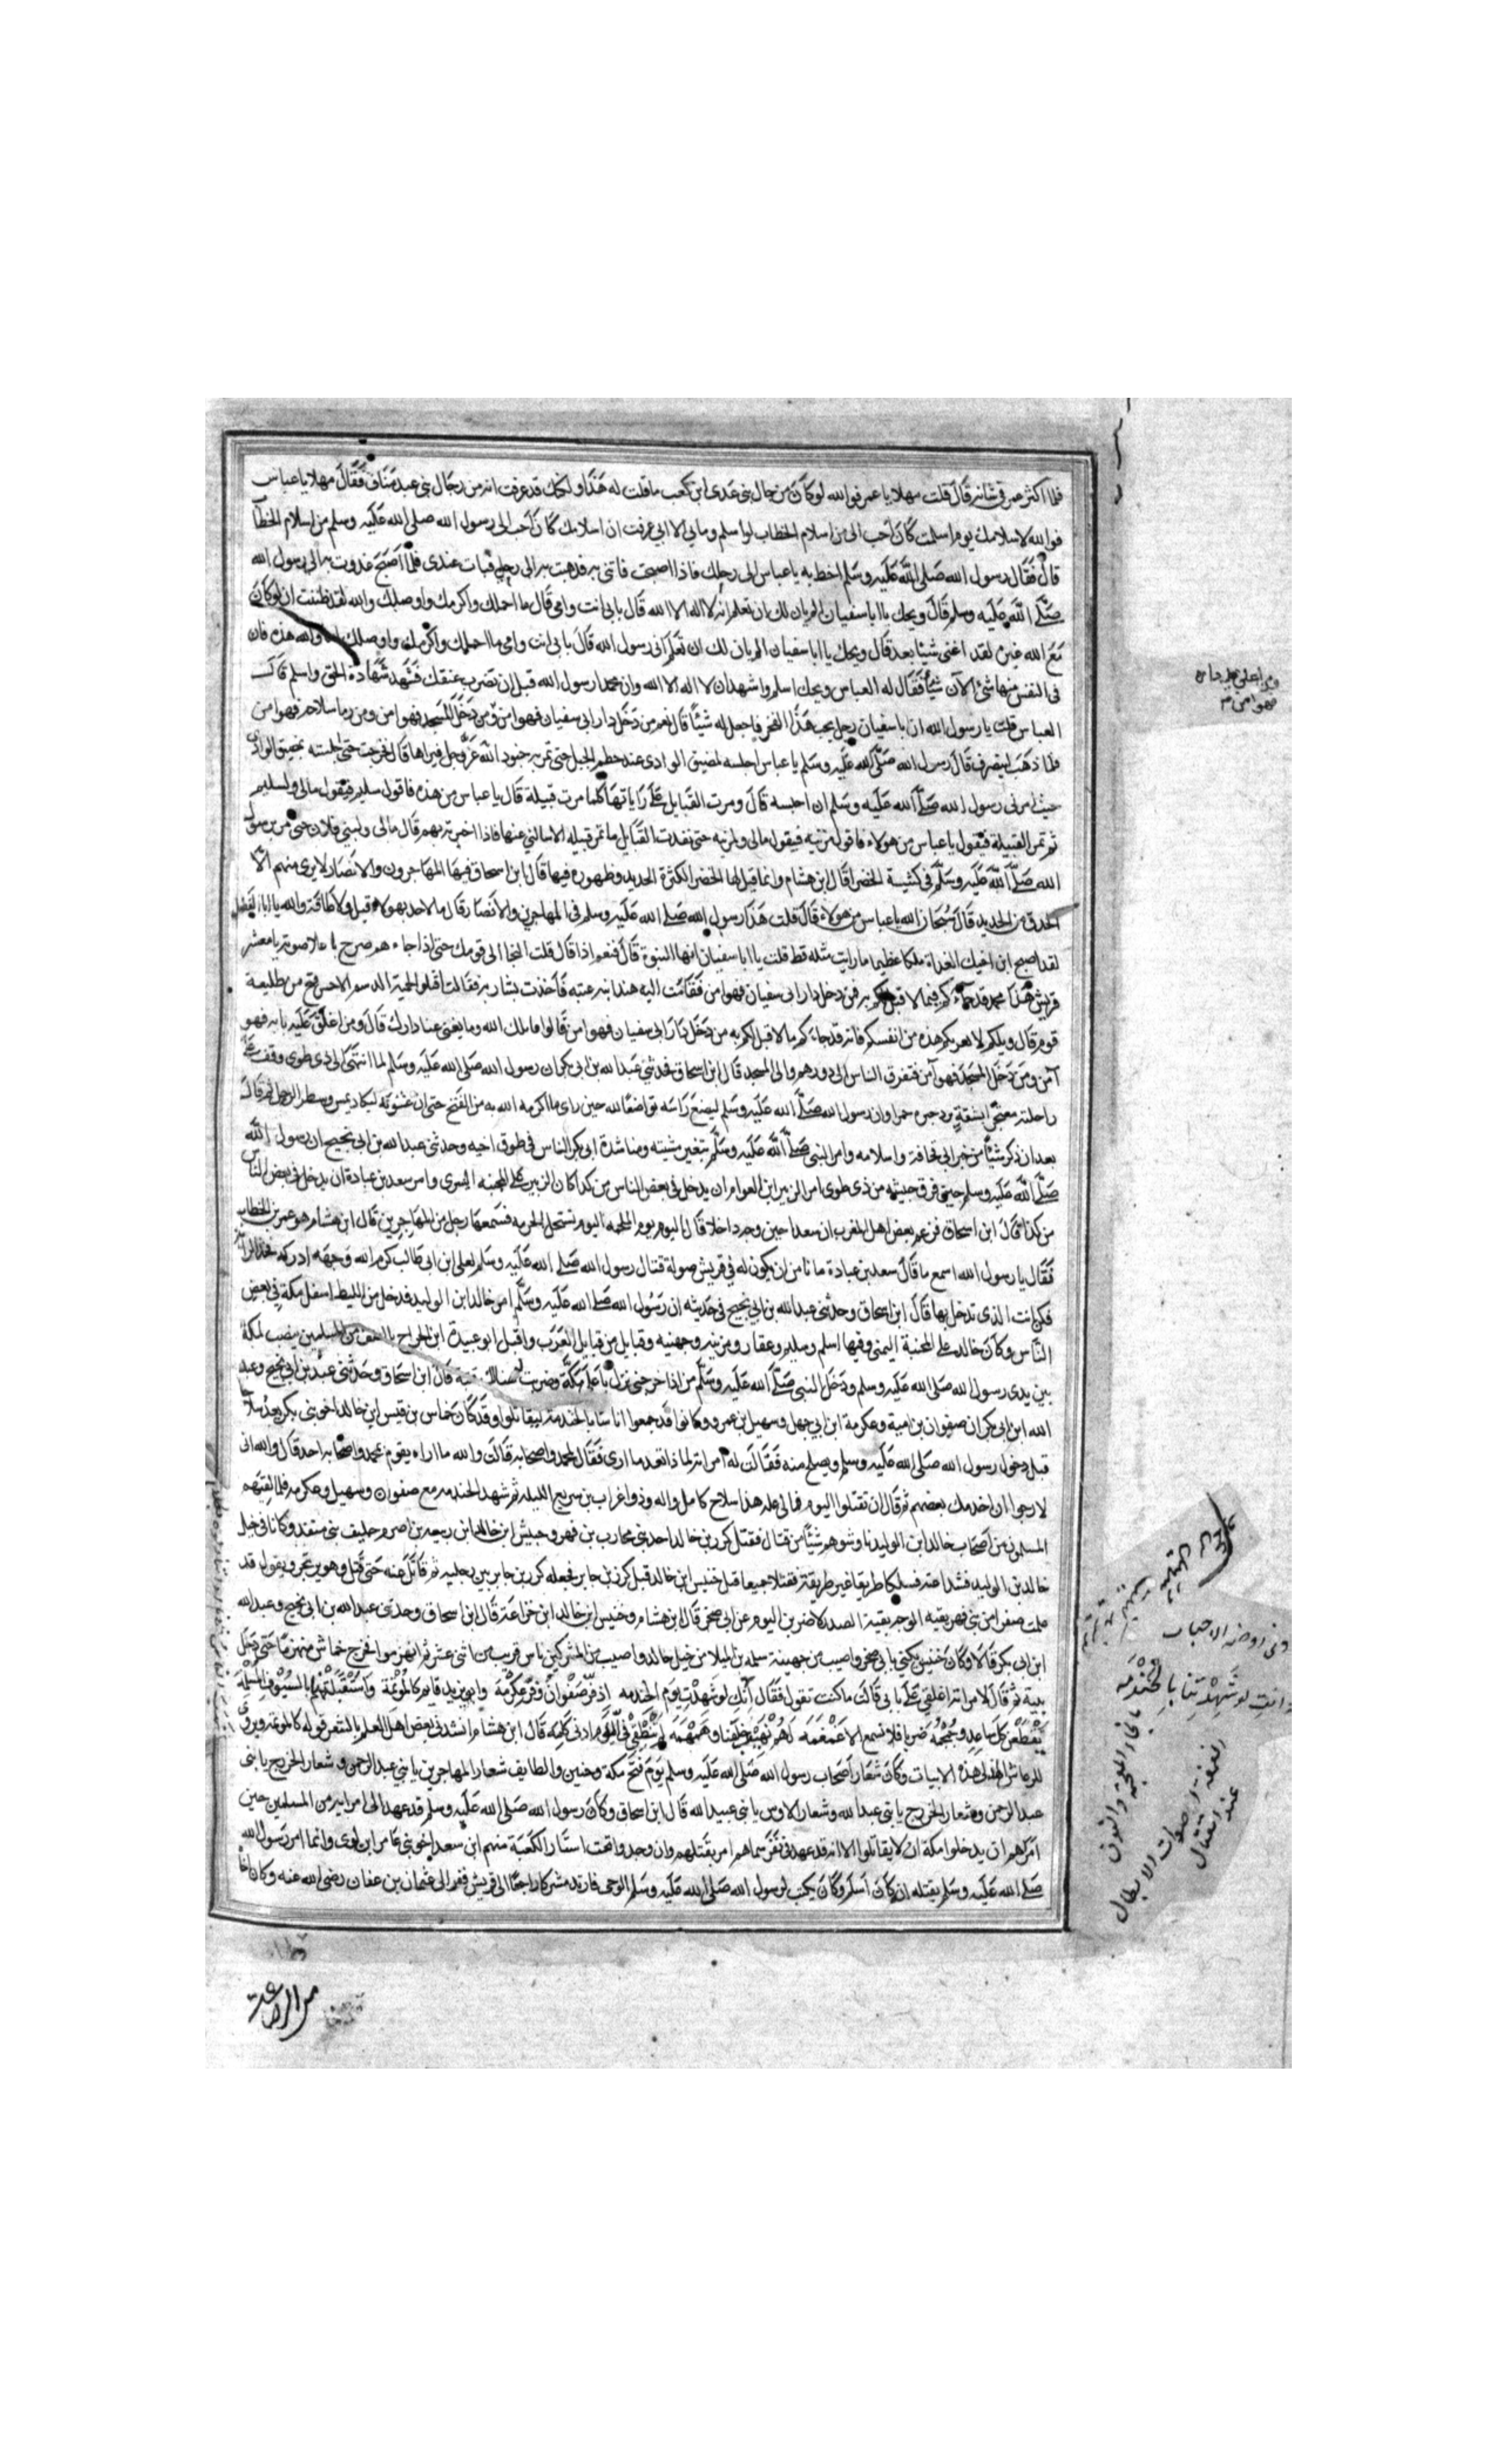 فلما اكثر عمر في شانه قال قلت مهلا يا عمر فوالله لو كان من رجال بني عدي ابن كعب ما قلت له هذا ولكنك قد عرفت انه من رجال بني عبد مناف فقال مهلا يا عباس
فوالله لاسلامك يوم اسلمت كان احب الي من اسلام الخطاب لو اسلم وما بي الا اني عرفت ان اسلامك كان احب الى رسول الله صلى الله عليه وسلم من اسلام الخطاب
قال فقال رسول الله صلى الله عليه وسلم اخط به يا عباس الى رحلك فاذا اصبحت فاتني به فذهبت به الى رحلي فبات عندي فلما اصبح غدوت به الى رسول الله
صلى الله عليه وسلم قال ويحك يا ابا سفيان الم يان لك ان تعلم انه لا اله الا الله قال بابي انت وامي قال ما احملك واكرمك واوصلك والله لقد ظننت ان لو كان
مع الله غيره لقد اغنى شيئا بعد قال ويحك يا ابا سفيان الم يان لك ان تعلم اني رسول الله قال بابي انت وامي ما احملك واكرمك واوصلك اما والله هذه فان
في النفس منها شئ الآن شيأ فقال له العباس ويحك اسلم واشهد ان لا اله الا الله وان محمدا رسول الله قبل ان تضرب عنقك فشهد شهادة الحق واسلم قال
العباس قلت يا رسول الله ان ابا سفيان رجل يحب هذا الفخر فاجعل له شيئا قال نعم من دخل دار ابي سفيان فهو امن ومن دخل المسجد فهو امن ومن رما سلاحه فهو امن
فلما ذهب لينصرف قال رسول الله صلى الله عليه وسلم يا عباس احبسه لمضيق الوادي عند خطم الجبل حتى تمر به جنود الله عز وجل فيراها قال فخرجت حتى احبسته بمضيق الوادي
حيث امرني رسول الله صلى الله عليه وسلم ان احبسه قال ومرت القبايل على راياتها كلما مرت قبيلة قال يا عباس من هذه فاقول سليم فيقول مالي ولسليم
ثم تمر القبيلة فيقول يا عباس من هولاء فاقول مزينه فيقول مالي ولمزينه حتى نفدت القبايل ما تمر قبيله الا سالني عنها فاذا اخبرته بهم قال مالي ولبني فلان حتى مر به رسول
الله صلى الله عليه وسلم في كتيبة الخضرا قال ابن هشام وانما قيل لها الخضرا لكثرة الحديد وظهوره فيها قال ابن اسحاق فيها المهاجرون والانصار لا يرى منهم الا
الحدق من الحديد قال سبحان الله يا عباس من هولاء قال قلت هذا رسول الله صلى الله عليه وسلم في المهاجرين والانصار قال ما لاحد بهولاء قبل ولا طاقة والله يا ابا الفضل
لقد اصبح ابن اخيك الغداة ملكا عظيما ما رايت مثله قط قلت يا ابا سفيان انها النبوة قال فنعم اذا قال قلت النجا الى قومك حتى اذا جاءهم صرح باعلا صوته يا معشر
قريش هذا محمد قد جاءكم فيما لا قبل لكم به فمن دخل دار ابي سفيان فهو امن فقامت اليه هند ابنه عتبه فاخذت بشاربه فقالت اقتلوا الحميت الدسم الاحمس قبح من طليعة
قوم قال ويلكم لا تغرنكم هذه من انفسكم فانه قد جاءكم ما لا قبل لكم به من دخل دار ابي سفيان فهو امن قالوا قاتلك الله وما يغني عنا دارك قال ومن اغلق عليه بابه فهو
آمن ومن دخل المسجد فهو آمن فتفرق الناس الى دورهم والى المسجد قال ابن اسحاق فحدثني عبد الله بن ابي بكر ان رسول الله صلى الله عليه وسلم لما انتهى الى ذي طوى وقف على
راحلته معتجرا بشقة برد حمرا وان رسول الله صلى الله عليه وسلم ليضع راسه تواضعا لله حين راى ما اكرمه الله به من الفتح حتى ان عثنونه ليكاد يمس وسط الرحل ثم قال
بعد ان ذكر شيئا من خبر ابي قحافة واسلامه وامر النبي صلى الله عليه وسلم بتغير مشيته ومناشدة ابي بكر الناس في طوق اخيه وحدثني عبد الله بن ابي نجيح ان رسول الله
صلى الله عليه وسلم حين فرق جيشه من ذي طوى امر الزبير ابن العوام ان يدخل في بعض الناس من كدا كان الزبير على المجنبه اليسرى وامر سعد بن عبادة ان يدخل في بعض الناس
من كذا قال ابن اسحاق فزعم بعض اهل المغرب ان سعدا حين وجه داخلا قال اليوم يوم الملحمه اليوم تستحل الحرمه فسمعها رجل من المهاجرين قال ابن هشام هو عمر بن الخطاب
فقال يا رسول الله اسمع ما قال سعد بن عبادة ما نامن ان يكون له في قريش صولة قتال رسول الله صلى الله عليه وسلم لعلي ابن ابي طالب كرم الله وجهه ادركه فخذ الراية
فكن انت الذي تدخل بها قال ابن اسحاق وحدثني عبد الله بن ابي نجيح في حديثه ان رسول الله صلى الله عليه وسلم امر خالد ابن الوليد فدخل من الليط اسفل مكة في بعض
الناس وكان خالد على المجنبة اليمنى وفيها اسلم وسليم وغفار ومزينه وجهينه وقبايل من قبايل العرب واقبل ابو عبيدة ابن الجراح بالصف من المسلمين ينصب لمكة
بين يدي رسول الله صلى الله عليه وسلم ودخل النبي صلى الله عليه وسلم من اذاخر حتى نزل باعلا مكة وضربت هنالك قبته قال ابن اسحاق وحدثني عبد بن ابي نجيح وعبد
الله ابن ابي بكر ان صفوان بن امية وعكرمة ابن ابي جهل وسهيل بن عمرو وكانوا قد جمعوا اناسا بالخندمة ليقاتلوا وقد كان حماس بن قيس ابن خالد اخو بني بكر يعد سلاحا
قبل دخول رسول الله صلى الله عليه وسلم ويصلح منه فقالت له امراته لماذا تعد ما ارى فقال لمحمد واصحابه قالت والله ما اراه يقوم بمحمد واصحابه احد قال والله اني
لارجو ان اخدمك بعضهم ثم قال ان تقتلوا اليوم فمالي عله هذا سلاح كامل واله وذو اغراب بن سريع الليله ثم شهد الخندمه مع صفوان وسهيل وعكرمه فلما لقيهم
المسلمون من اصحاب خالد ابن الوليد ناوشوهم شيئا من قتال فقتل كرز بن خالد احد بني محارب بن فهر وحبيش ابن خالد ابن ربيعه بن اصرم حليف بني منقذ وكانا في خيل
خالد بن الوليد فشذا عنه فسلكا طريقا غير طريقته فقتلا جميعا قبل خنيس ابن خالد قبل كرز بن جابر فجعله كرز بن جابر بين رجليه ثم قاتل عنه حتى قتل وهو يرتجز ويقول قد
علمت صفرا من بني فهر نقيه الوجه نقية الصدر لاضربن اليوم عن ابي صخر قال ابن هشام وخنيس ابن خالد ابن خزاعة قال ابن اسحاق وحدثني عبد الله بن ابي نجيح وعبد الله
ابن ابي بكر قالا وكان خنيس يكنى بابي صخر واصيب من جهينة سلمه بن الميلا من خيل خالد واصيب من المشركين ناس قريب من اثنى عشر ثم انهزموا فخرج حماس منهزما حتى دخل
بيته ثم قال لامراته اغلقي علي بابي قالت ما كنت تقول فقال انك لو شهدت يوم الخندمه اذ فر صفوان وفر عكرمة وابو يزيد قايم كالموتمة واستقبلتهم بالسيوف المسلمه
يقطعن كل ساعد وجمجمه ضربا فلا تسمع الا غمغمه لهم نهيت خلفنا وهمهمه لم تنطقي في اللوم ادنى كلمه قال ابن هشام انشدني بعض اهل العلم بالشعر قوله كالموتمه ويروى
للرعاش الهذلي هذه الابيات وكان شعار اصحاب رسول الله صلى الله عليه وسلم يوم فتح مكة وحنين والطايف شعار المهاجرين يا بني عبد الرحمن وشعار الخزرج يا بني
عبد الرحمن وشعار الخزرج يا بني عبد الله وشعار الاوس يا بني عبيد الله قال ابن اسحاق وكان رسول الله صلى الله عليه وسلم قد عهد الى امرايه من المسلمين حين
امرهم ان يدخلوا مكة ان لا يقاتلوا الا انه قد عهد في نفر سماهم امر بقتلهم وان وجدوا تحت استار الكعبة منهم ابن سعد اخو بني عامر ابن لوى وانما امر رسول الله
صلى الله عليه وسلم بقتله ان كان اسلم وكان يكتب لرسول الله صلى الله عليه وسلم الوحي فارتد مشركا راجعا الى قريش ففر الى عثمان بن عفان رضي الله عنه وكان اخا
من الرضاعة
فهو امن
وفي روضه الاحباب
وانت لو شهدتنا بالخندمه
بالخاء المعجمة والنون
الغمغمة اصوات الابطال
عند القتال